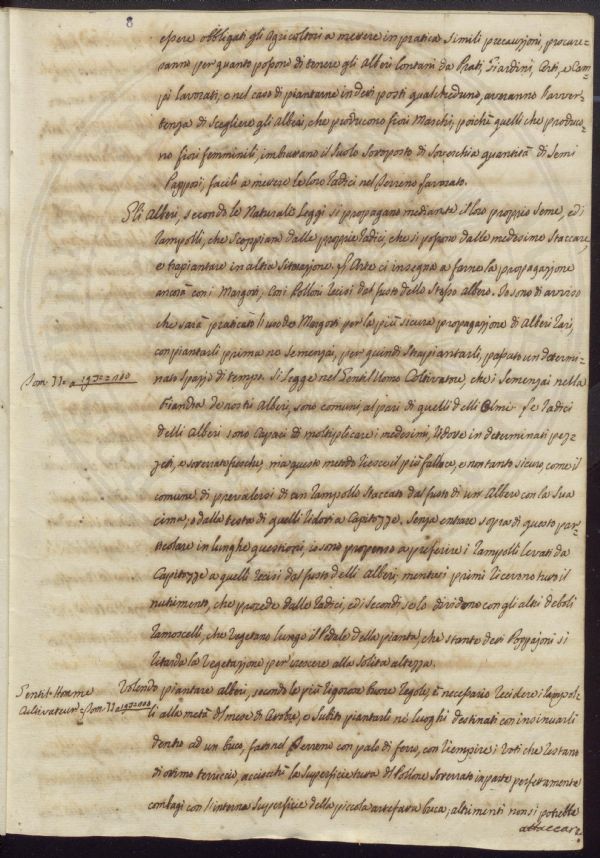 8
essere obbligati gli Agricoltori a mettere in pratica simili precauzioni, procare-
ranno per quanto possono di tenere gli alberi lontani da Prati, Giardini, Orti, e Cam-
pi lavorati, e nel caso di piantarne in detti posti qualcheduno, averanno l'avver-
tenza di scegliere gli Alberi, che producono fiori Maschi, poichè quelli che produco-
no fiori femminili, imbrattano il suolo sottoposto di soverchia quantità di semi
Papposi, facili a mettere le loro radici nel terreno lavorato.
Gli Alberi, secondo le Naturali Leggi si propagano mediante il loro proprio seme, ed i
Rampolli, che scoppiano dalle proprie radici, che si possono dalle medesime staccare,
e trapiantare in altra situazione. L'Arte ci insegna a farne la propagazione
ancora con i Margotti, con i Polloni recisi dal fusto dello stesso Albero. Io sono di avviso
che sarà praticato l'uso de Margotti per la più sicura propagazione di Alberi rari,
con piantarli prima ne Semenzai, per quindi strapiantarli, passato un determi-
Tom. II. a 197=200
nato spazio di tempo. Si legge nel Gentil Uomo Coltivatore, che i Semenzai nella
Fiandra de nostri Alberi, sono comuni al pari di quelli delli Olmi. Le radici
delli Alberi sono capaci di moltiplicare i medesimi, ridotte in determinati pez-
zetti, e sotterrate fresche, ma questo metodo riesce il più fallace, e non tanto sicuro, come il
comune di prevalersi di un rampollo staccato dal fusto di un Albero con la sua
cima, o dalla testa di quelli ridotti a Capitozze. Senza entrare sopra di questo par-
ticolare in lunghe questioni, io sono propenso a preferire i rampolli levati da
Capitozze a quelli recisi dal fusto delli Alberi, mentre i primi ricevono tutto il
nutrimento, che procede dalle radici, ed i secondi se lo dividono con gli altri deboli
ramoscelli, che vegetano lungo il Pedale della pianta, che stante detti Poppajoni si
ritarda la vegetazione per crescere alla solita altezza.
Gentil-Homme
Cultivateur. Tom. II a 192=200
Volendo piantare alberi, secondo le più rigorose buone regole, è necessario recidere i rampol-
li alla metà del mese di Ottobre, e subito piantarli ne luoghi destinati con insinuarli
dentro ad un buco, fatto nel terreno con palo di ferro, con riempire i voti che restano
di ottimo terriccio, acciocchè la superficie tutta del Pollone sotterrato in parte perfettamente
combagi con l'interna superficie della piccola artefatta buca, altrimenti non si potrebbe
attaccare.